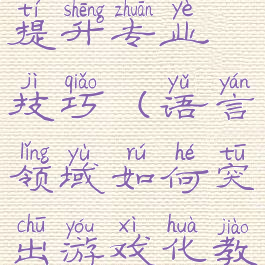 tí shēng zhuān yè
提升专业
jì qiǎo yǔ yán
技巧（语言
lǐng yù rú hé tū
领域如何突
chū yóu xì huà jiào
出游戏化教